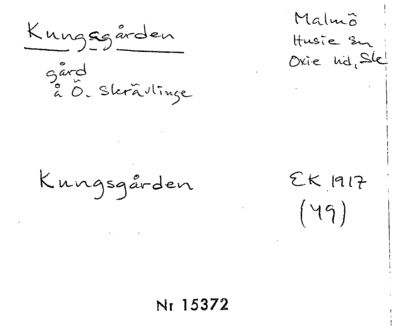 Kungsgården
Malmö
Husie sn
Oxie hd, Sk
gård
å Ö. Skrävlinge
Kungsgården
EK 1917
(49)
Nr 15372